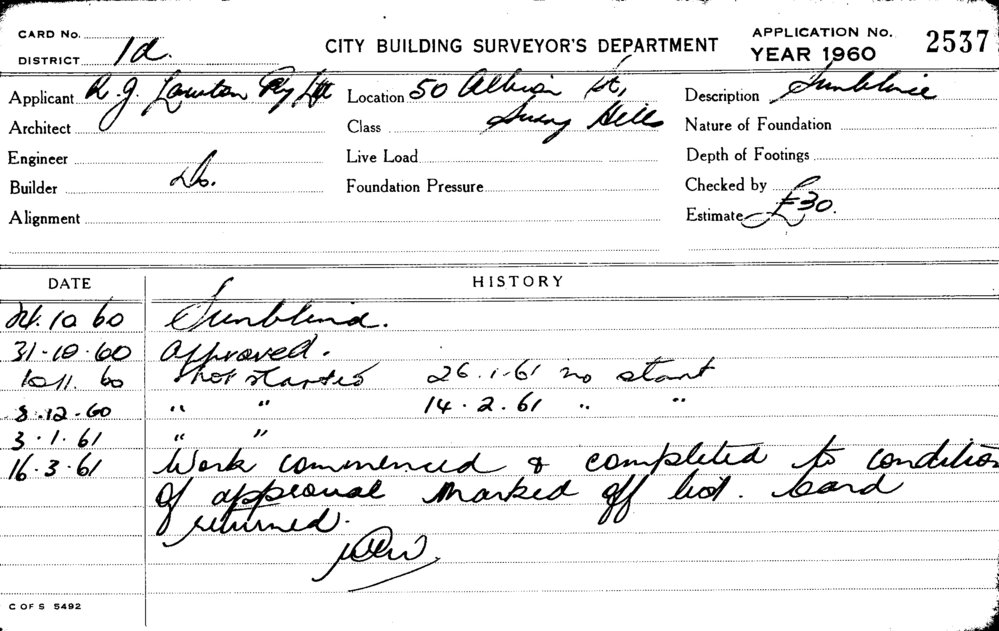 CARD No.
DISTRICT 1d.
CITY BUILDING SURVEYOR'S DEPARTMENT
APPLICATION No. 2537
YEAR 1960
Applicant R. J. Lawton Pty Ltd Location 50 Albion St, Description Sunblind
Architect Class Surry Hills Nature of Foundation
Engineer Live Load Depth of Footings
Builder Do. Foundation Pressure Checked by
Alignment Estimate £30.
DATE HISTORY
24.10 60 Sunblind.
31-10-60 Approved.
10.11. 60 Not started 26.1.61 no start
8.12.60 " " 14.2.61 " "
3.1.61 " "
16.3.61 Work commenced & completed to condition
of approval marked off list. Card
returned.
C OF S 5492